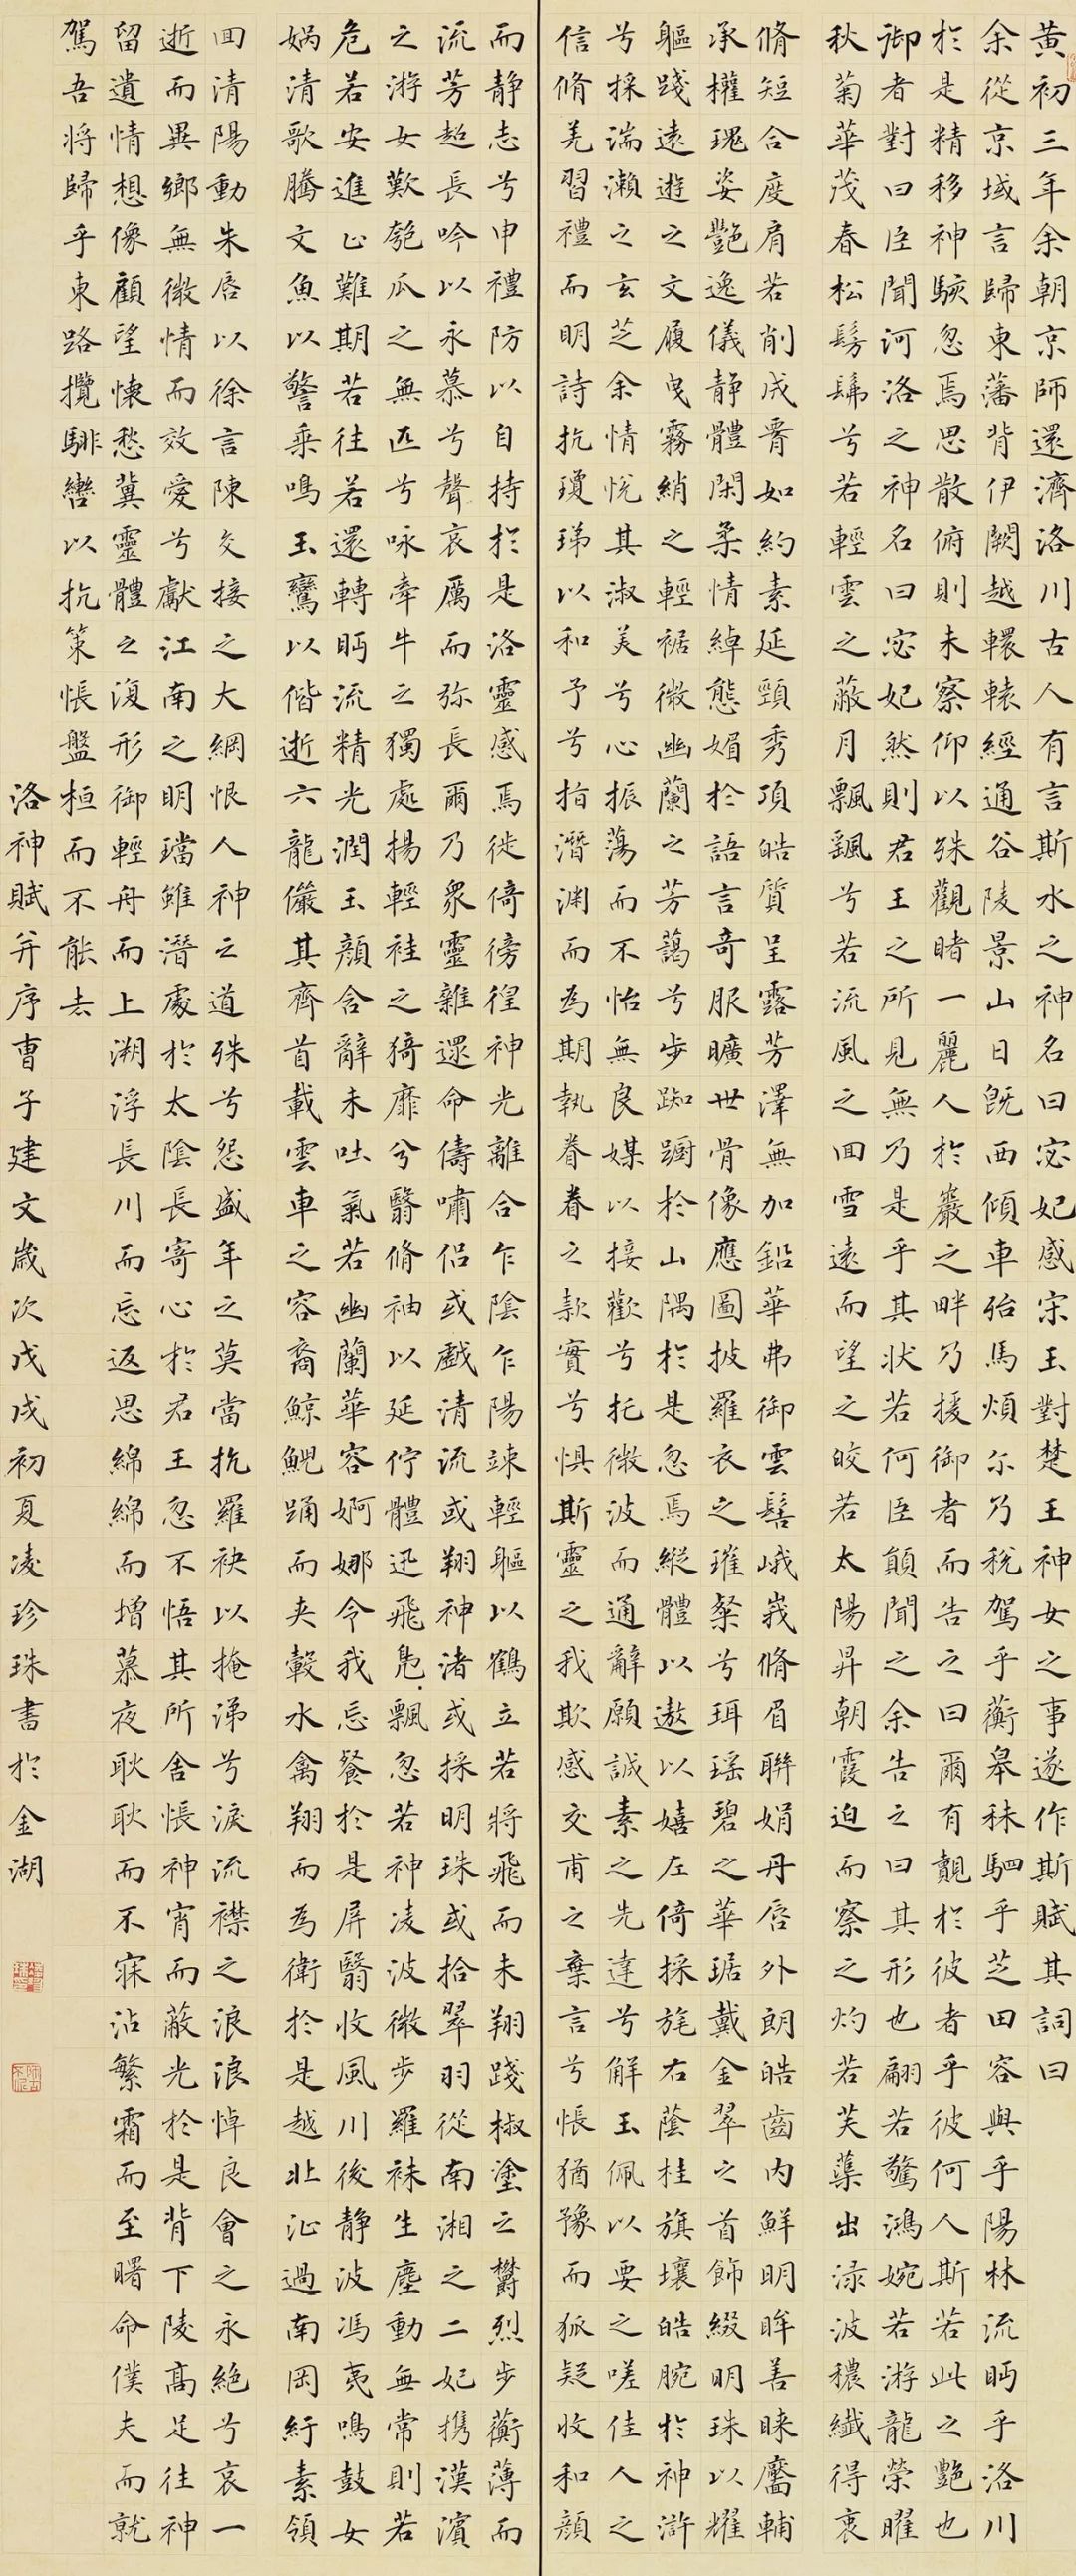 黃初三年余朝京師還濟洛川古人有言斯水之神名曰宓妃感宋玉對楚王神女之事遂作斯賦其詞曰
余從京域言歸東藩背伊闕越轘轅經通谷陵景山日既西傾車殆馬煩尔乃稅駕乎蘅皋秣駟乎芝田容與乎陽林流眄乎洛川
於是精移神駭忽焉思散俯則未察仰以殊觀睹一麗人於巖之畔乃援御者而告之曰爾有覿於彼者乎彼何人斯若此之艷也
御者對曰臣聞河洛之神名曰宓妃然則君王之所見無乃是乎其狀若何臣願聞之余告之曰其形也翩若驚鴻婉若游龍榮曜
秋菊華茂春松髣髴兮若輕雲之蔽月飄颻兮若流風之回雪遠而望之皎若太陽昇朝霞迫而察之灼若芙蕖出淥波穠纖得衷
脩短合度肩若削成腰如約素延頸秀項皓質呈露芳澤無加鉛華弗御雲髻峨峩脩眉聯娟丹唇外朗皓齒內鮮明眸善睞靨輔
承權瑰姿艷逸儀靜體閑柔情綽態媚於語言奇服曠世骨像應圖披羅衣之璀粲兮珥瑤碧之華琚戴金翠之首飾綴明珠以耀
軀踐遠遊之文履曳霧綃之輕裾微幽蘭之芳藹兮步踟躕於山隅於是忽焉縱體以遨以嬉左倚採旄右蔭桂旗壤皓腕於神滸
兮採湍瀨之玄芝余情悅其淑美兮心振蕩而不怡無良媒以接歡兮托微波而通辭願誠素之先達兮解玉佩以要之嗟佳人之
信脩羌習禮而明詩抗瓊珶以和予兮指潛淵而為期執眷眷之款實兮懼斯靈之我欺感交甫之棄言兮悵猶豫而狐疑收和顏
而静志兮申禮防以自持於是洛靈感焉徙倚徬徨神光離合乍陰乍陽竦輕軀以鶴立若將飛而未翔踐椒塗之欝烈步蘅薄而
流芳超長吟以永慕兮聲哀厲而弥長爾乃眾靈雜遝命儔嘯侶或戲清流或翔神渚或採明珠或拾翠羽從南湘之二妃携漢濱
之游女歎匏瓜之無匹兮咏牽牛之獨處揚輕袿之猗靡兮翳脩袖以延佇體迅飛鳧飄忽若神凌波微步羅袜生塵動無常則若
危若安進止難期若往若還轉眄流精光潤玉顏含辭未吐氣若幽蘭華容婀娜令我忘餐於是屏翳收風川後静波馮夷鳴鼓女
媧清歌騰文魚以警乘鳴玉鸞以偕逝六龍儼其齊首載雲車之容裔鯨鯢踊而夾轂水禽翔而為衛於是越北沚過南岡紆素領
回清陽動朱唇以徐言陳交接之大綱恨人神之道殊兮怨盛年之莫當抗羅袂以掩涕兮淚流襟之浪浪悼良會之永絕兮哀一
逝而異鄉無微情而效愛兮獻江南之明璫雖潛處於太陰長寄心於君王忽不悟其所舍悵神宵而蔽光於是背下陵高足往神
留遺情想像顧望懷愁冀靈體之復形御輕舟而上溯浮長川而忘返思綿綿而增慕夜耿耿而不寐沾繁霜而至曙命僕夫而就
駕吾將歸乎東路攬騑轡以抗策悵盤桓而不能去
洛神賦并序曹子建文歲次戊戌初夏凌珍珠書於金湖